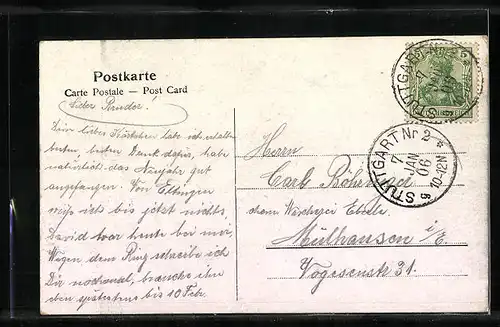 Postkarte
Carte Postale — Post Card
Lieber Bruder!
Dein liebes Kärtchen habe ich erhalten
besten, besten Dank dafür, habe
natürlich das Neujahr gut
angefangen. Von Eltingen
weiß ich bis jetzt nichts,
David war heute bei mir,
Wegen dem Ring schreibe ich
Dir nochmal, brauche ihn
eben spätestens bis 10 Febr.
Herrn
Carl
Mülhausen i/E.
Vogesenstr 31.
STUTTGART Nr 2
7
JAN
06
10-12N
STUTTGART Nr 2 *
7
JAN
06
10-12N
g